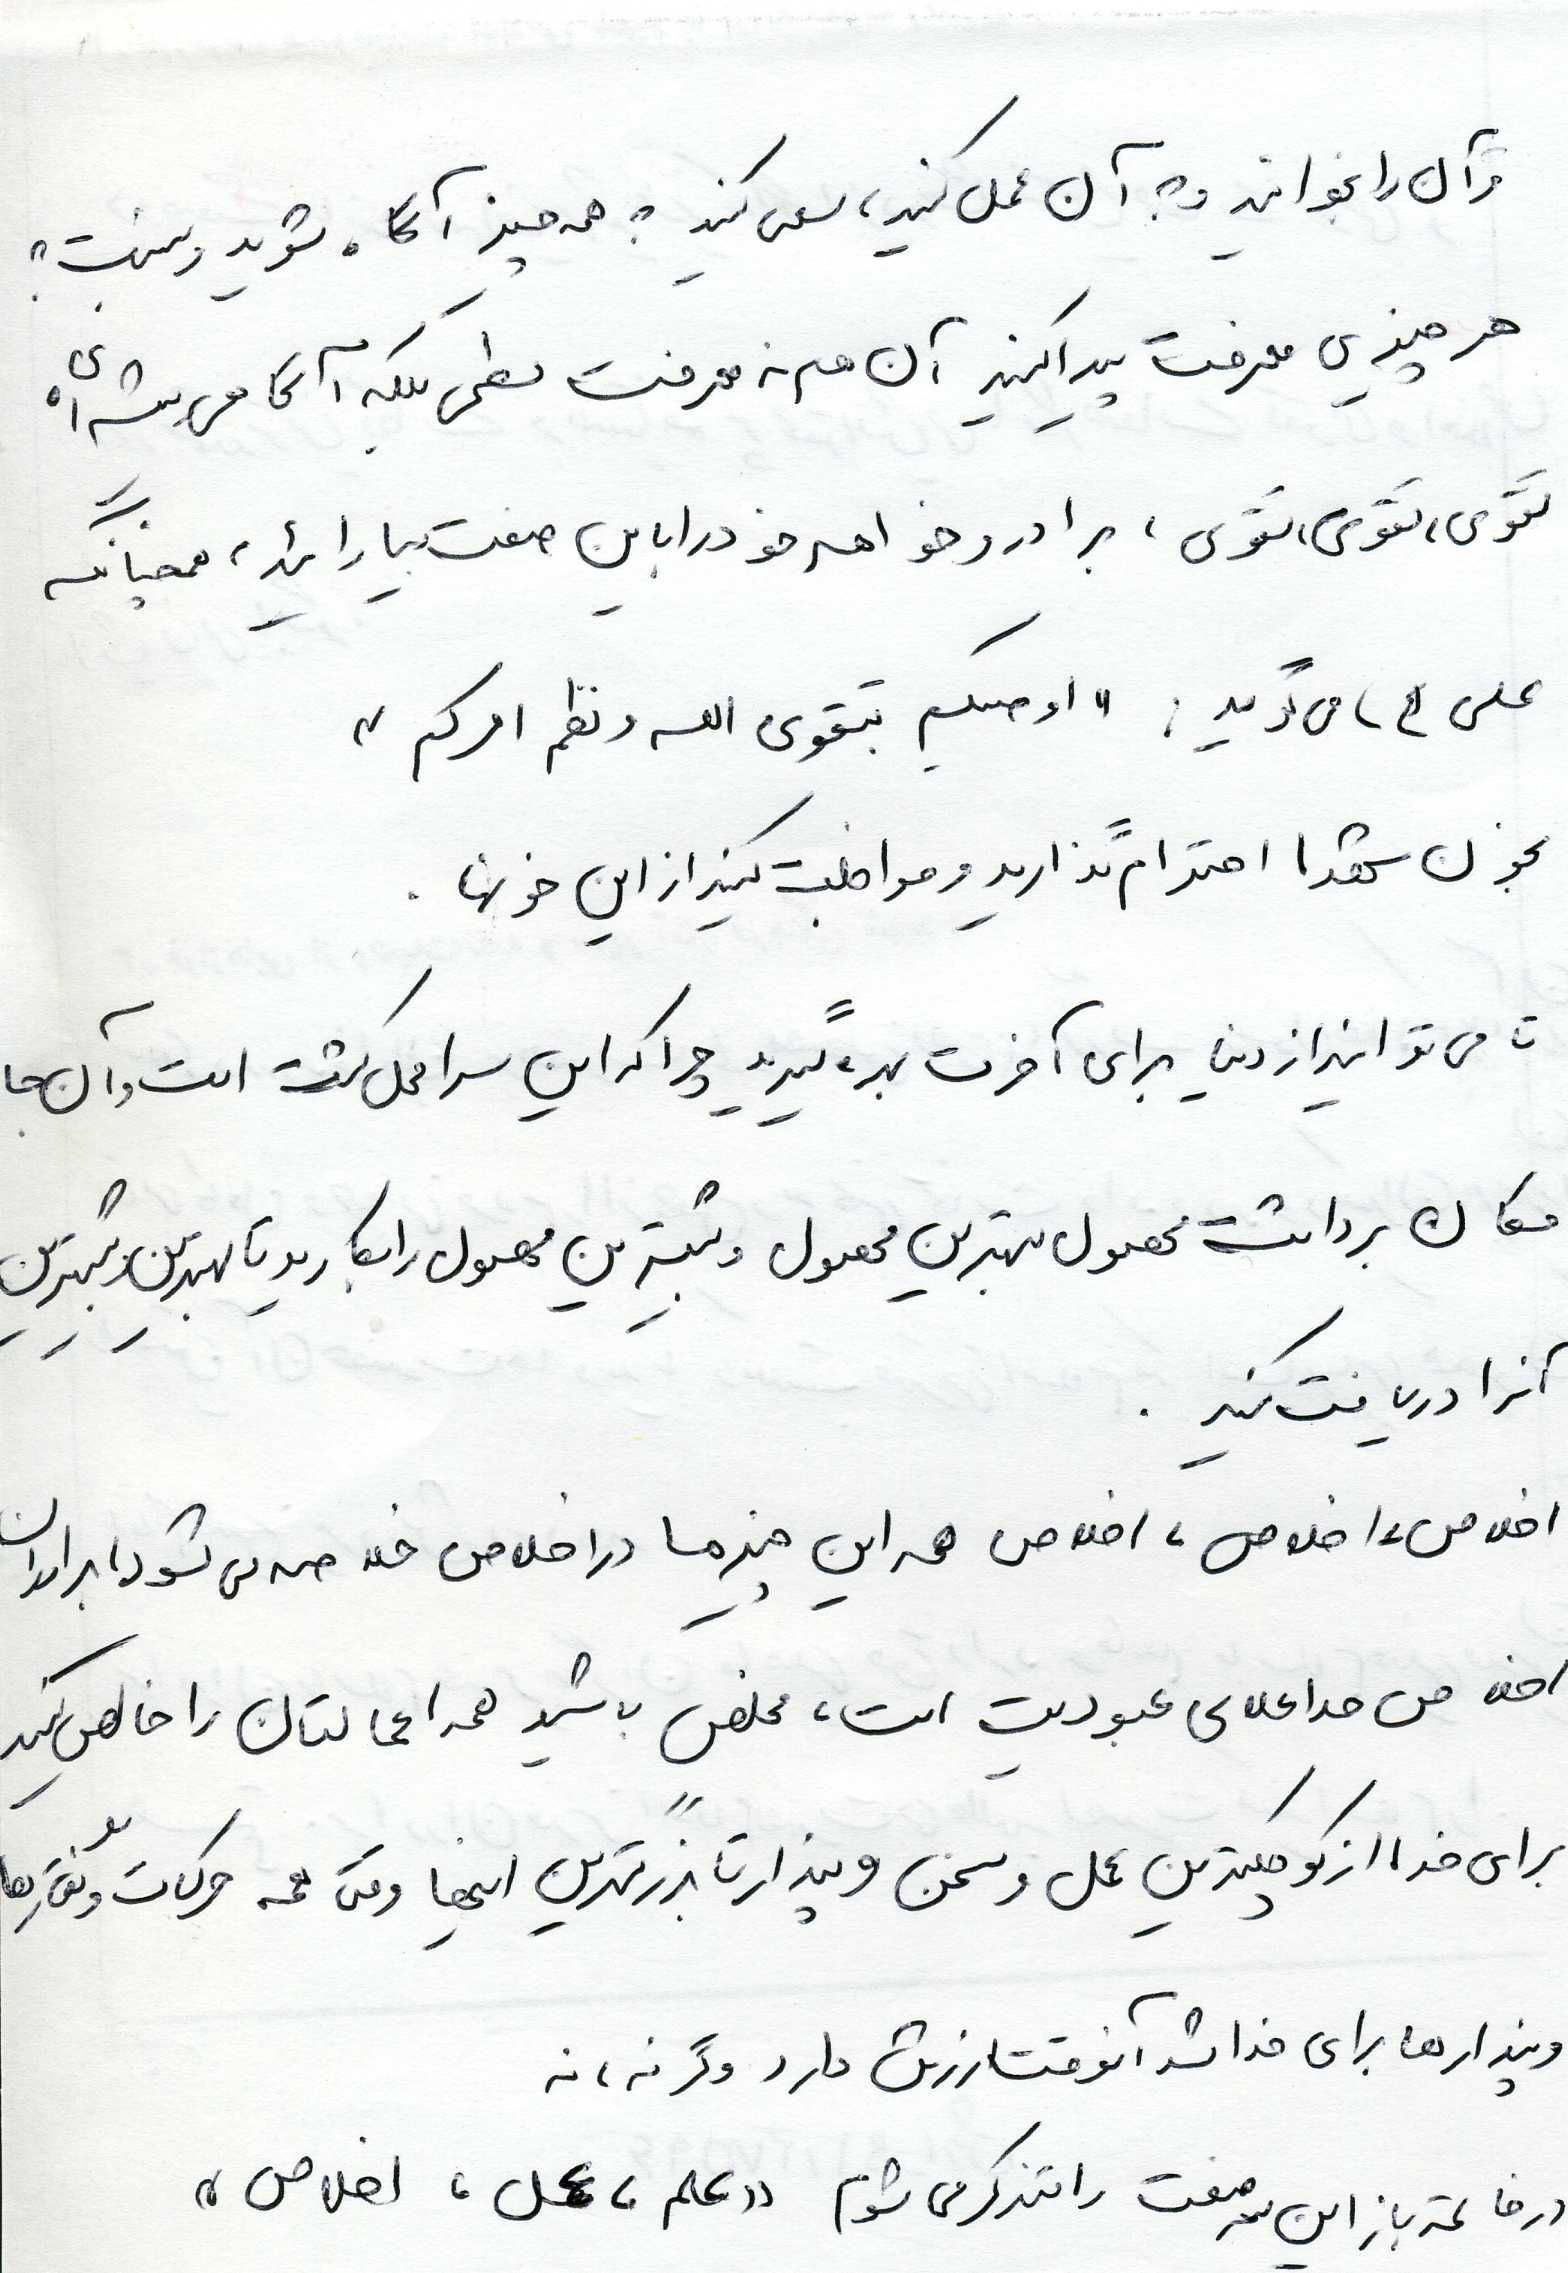 قرآن را بخوانید و به آن عمل کنید، سعی کنید به همه چیز آگاه شوید و نسبت به
هر چیزی معرفت پیدا کنید آن هم نه معرفت سطحی بلکه آگاهی ریشه‌ای
تقوی، تقوی، تقوی، برادر و خواهر خود را با این صفت بیارائید، همچنانکه
علی (ع) می‌گوید: "اوصیکم بتقوی الله و نظم امرکم"
بخون شهدا احترام بگذارید و مواظبت کنید از این خونها.
تا می‌توانید از دنیا برای آخرت بهره گیرید چرا که این سرا محل کشت است و آن جا
مکان برداشت محصول بهترین محصول و بیشترین محصول را بکارید تا بهترین و بیشترین
آنرا دریافت کنید.
اخلاص، اخلاص، اخلاص همه این چیزها در اخلاص خلاصه می‌شود، برادران
اخلاص حد اعلای عبودیت است، مخلص باشید همه اعمالتان را خالص کنید
برای خدا، از کوچکترین عمل و سخن و پندار تا بزرگترین اینها وقتی همه حرکات و گفتارها
و پندارها برای خدا شد آنوقت ارزش دارد وگرنه، نه
در خاتمه باز این سه صفت را متذکر می‌شوم «علم، عمل، اخلاص»